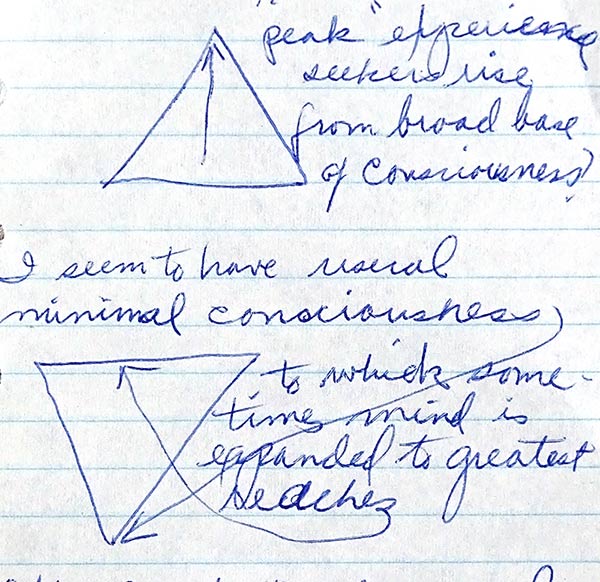 "peak" experience
seekers rise
from broad base
of consciousness?
I seem to have usual
minimal consciousness
to which some-
times mind is
expanded to greatest
reaches